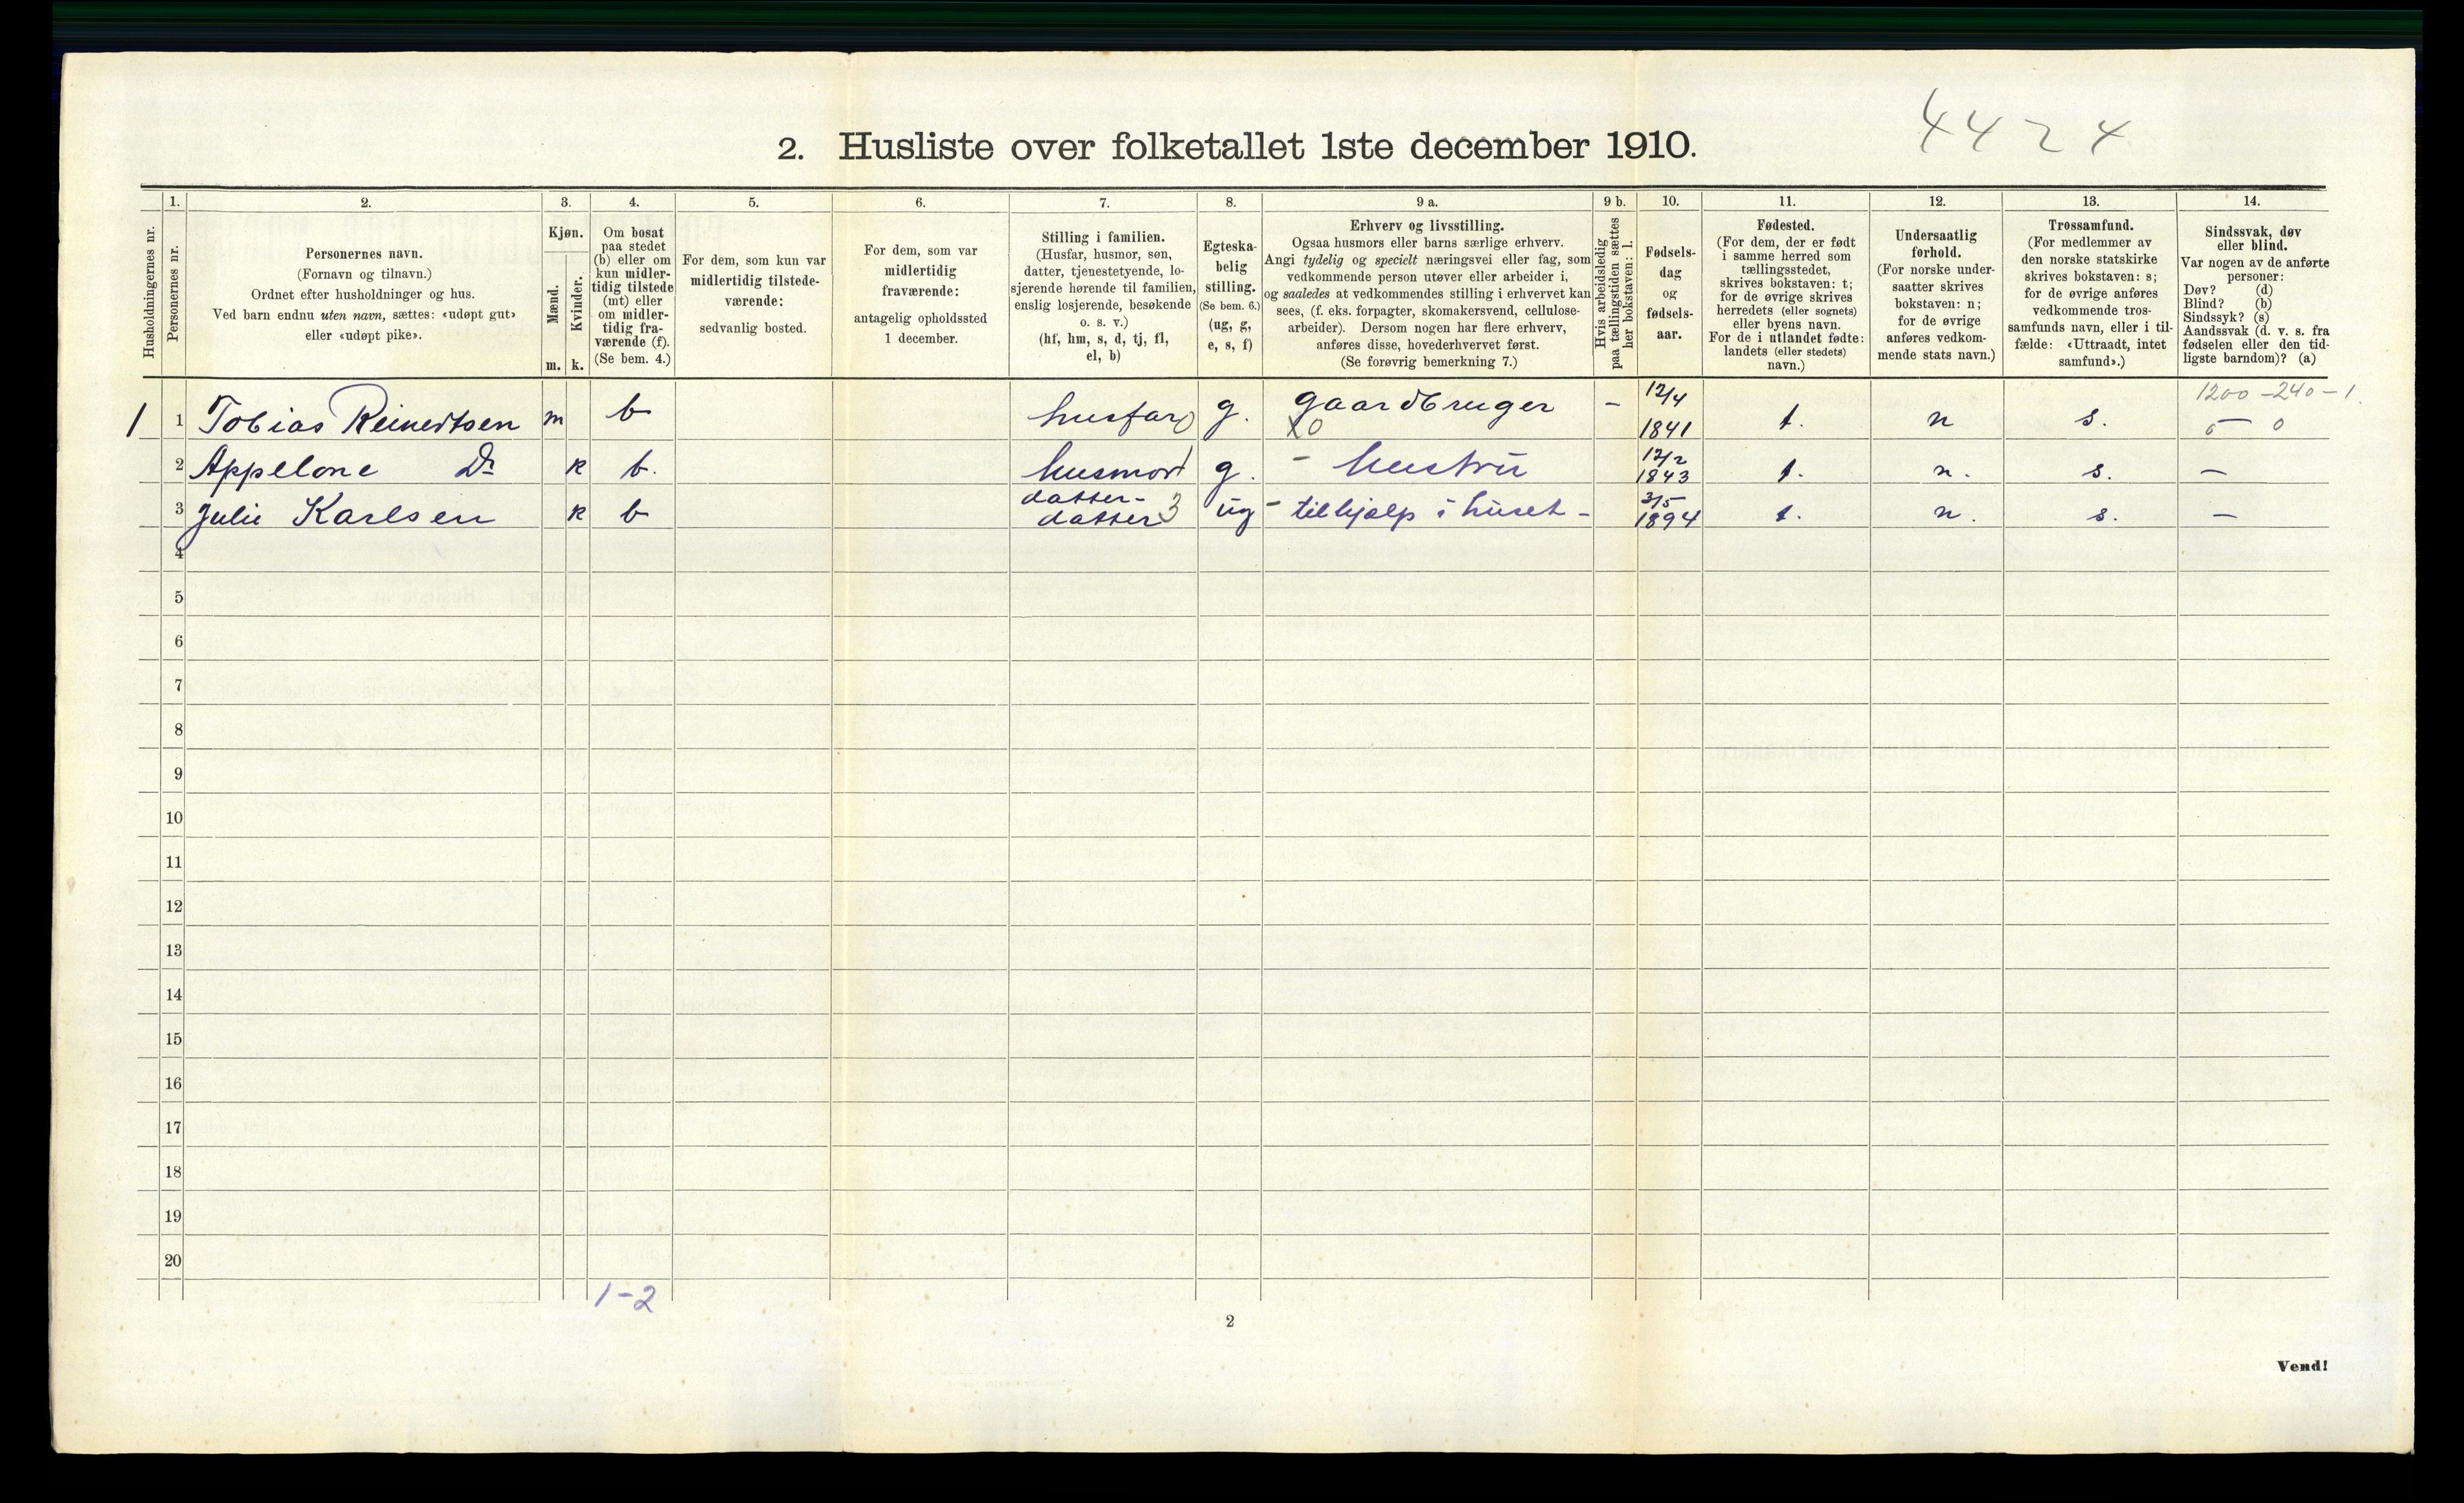 4424
2. Husliste over folketallet 1ste december 1910.
Husholdningernes nr.
1.
Personernes nr.
2.
Personernes navn.
(Fornavn og tilnavn.)
Ordnet efter husholdninger og hus.
Ved barn endnu uten navn, sættes: «udøpt gut»
eller «udøpt pike».
3.
Kjøn.
Mænd.
Kvinder.
m. k.
4.
Om bosat
paa stedet
(b) eller om
kun midler-
tidig tilstede
(mt) eller
om midler-
tidig fra-
værende (f).
(Se bem. 4.)
5.
For dem, som kun var
midlertidig tilstede-
værende:
sedvanlig bosted.
6.
For dem, som var
midlertidig
fraværende:
antagelig opholdssted
1 december.
7.
Stilling i familien.
(Husfar, husmor, søn,
datter, tjenestetyende, lo-
sjerende hørende til familien,
enslig losjerende, besøkende
o. s. v.)
(hf, hm, s, d, tj, fl,
el, b)
8.
Egteska-
belig
stilling.
(Se bem. 6.)
(ug, g,
e, s, f)
9 a.
Erhverv og livsstilling.
Ogsaa husmors eller barns særlige erhverv.
Angi tydelig og specielt næringsvei eller fag, som
vedkommende person utøver eller arbeider i,
og saaledes at vedkommendes stilling i erhvervet kan
sees, (f. eks. forpagter, skomakersvend, cellulose-
arbeider). Dersom nogen har flere erhverv,
anføres disse, hovederhvervet først.
(Se forøvrig bemerkning 7.)
9 b.
Hvis arbeidsledig
paa tællingstiden sættes
her bokstaven: l.
10.
Fødsels-
dag
og
fødsels-
aar.
11.
Fødested.
(For dem, der er født
i samme herred som
tællingsstedet,
skrives bokstaven: t;
for de øvrige skrives
herredets (eller sognets)
eller byens navn.
For de i utlandet fødte:
landets (eller stedets)
navn.)
12.
Undersaatlig
forhold.
(For norske under-
saatter skrives
bokstaven: n;
for de øvrige
anføres vedkom-
mende stats navn.)
13.
Trossamfund.
(For medlemmer av
den norske statskirke
skrives bokstaven: s;
for de øvrige anføres
vedkommende tros-
samfunds navn, eller i til-
fælde: «Uttraadt, intet
samfund».)
14.
Sindssvak, døv
eller blind.
Var nogen av de anførte
personer:
Døv? (d)
Blind? (b)
Sindssyk? (s)
Aandssvak (d. v. s. fra
fødselen eller den tid-
ligste barndom)? (a)
1200 - 240 - 1.
1 1 Tobias Reinertsen m b husfar g. gaardbruger - 12/4 1841 t. n s. — 0
X0
2 Appelone Do k b. husmor g. - hustru 12/2 1843 t. n. s. —
3 Julie Karlsen k b datter-datter 3 ug - tilhjælp i huset - 3/5 1894 t. n. s. —
4
5
6
7
8
9
10
11
12
13
14
15
16
17
18
19
20
1-2
2
Vend!